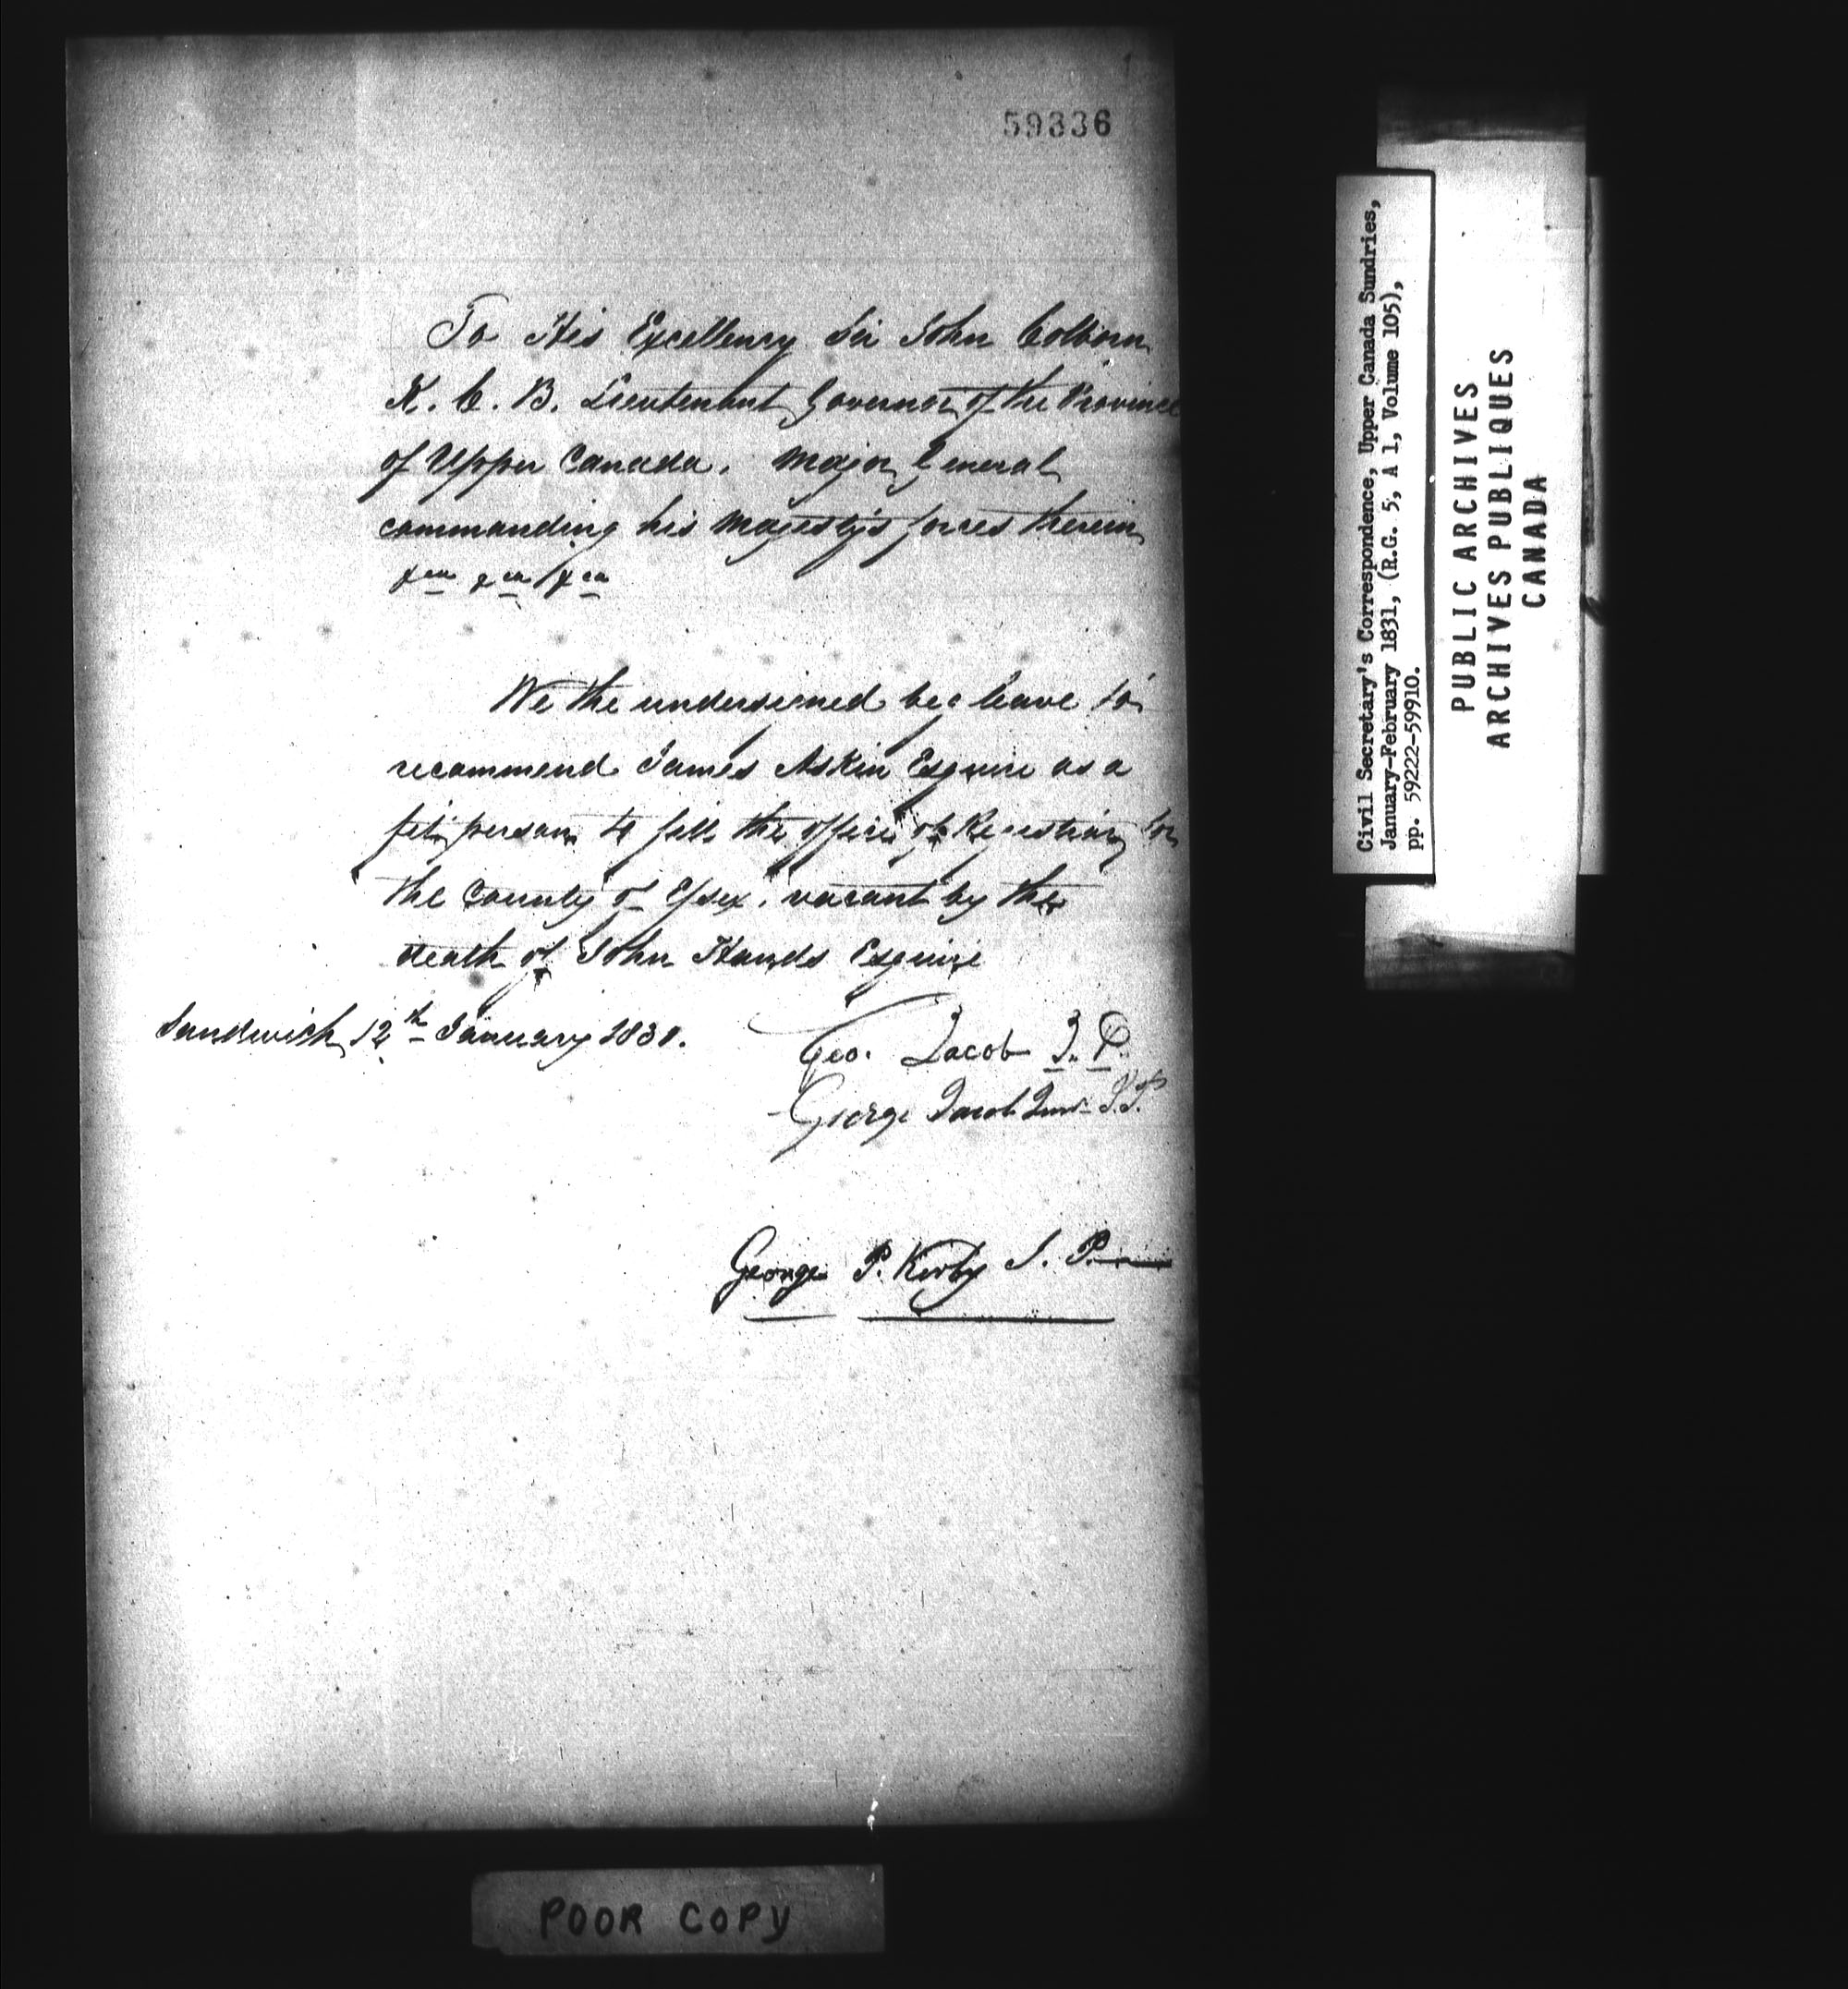 59336
To His Excellency Sir John Colborn
K. C. B. Lieutenant Governor of the Province
of Upper Canada. Major General
commanding his Majesty's forces therein
&ca &ca &ca
We the undersigned beg leave to
recommend James Askin Esquire as a
fit person to fill the office of Registrar for
the County of Essex, vacant by the
death of John Hands Esquire
Sandwich 12th January 1831.
Geo. Jacob J. P.
George Jacob Junr J.P.
George P. Kerby J. P.
Civil Secretary's Correspondence, Upper Canada Sundries,
January-February 1831, (R.G. 5, A 1, Volume 105),
pp. 59222-59910.
PUBLIC ARCHIVES
ARCHIVES PUBLIQUES
CANADA
POOR COPY